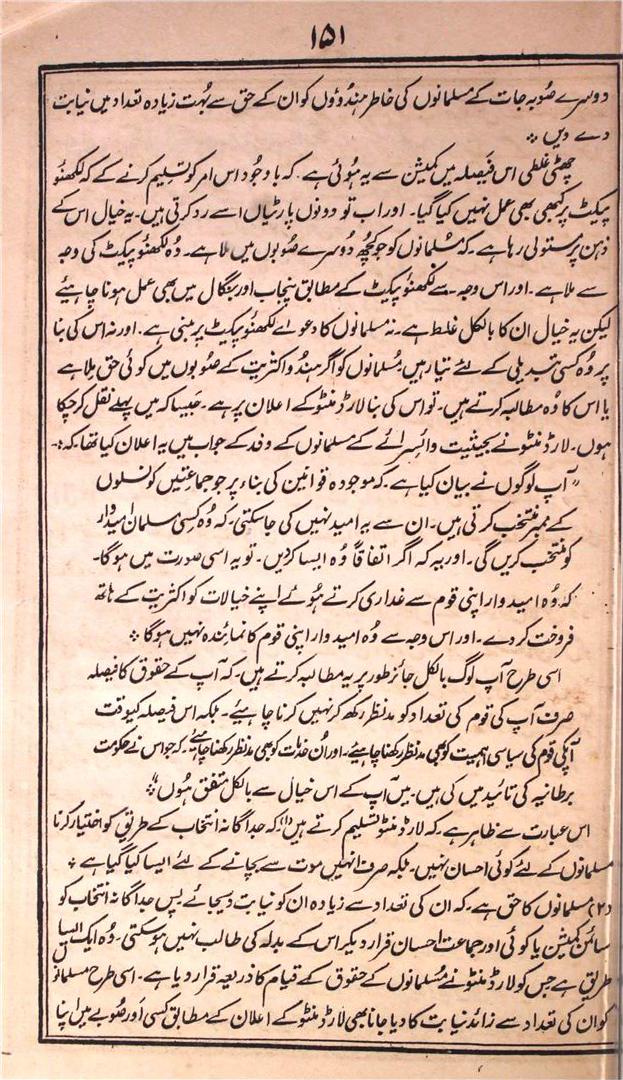 ۱۵۱
دوسرے صوبہ جات کے مسلمانوں کی خاطر ہندوؤں کو ان کے حق سے بہت زیادہ تعداد میں نیابت
دے دیں ؞
چھٹی غلطی اس فیصلہ میں کمیشن سے یہ ہوئی ہے۔ کہ باوجود اس امر کو تسلیم کرنے کے کہ لکھنؤ
پیکٹ پر کبھی بھی عمل نہیں کیا گیا۔ اور اب تو دونوں پارٹیاں اسے رد کرتی ہیں۔ یہ خیال اس کے
ذہن پر مستولی رہا ہے۔ کہ مسلمانوں کو جو کچھ دوسرے صوبوں میں ملا ہے۔ وہ لکھنؤ پیکٹ کی وجہ
سے ملا ہے۔ اور اس وجہ سے لکھنؤ پیکٹ کے مطابق پنجاب اور بنگال میں بھی عمل ہونا چاہئے
لیکن یہ خیال ان کا بالکل غلط ہے۔ نہ مسلمانوں کا دعوٰے لکھنؤ پیکٹ پر مبنی ہے۔ اور نہ اس کی بنا
پر وہ کسی تبدیلی کے لئے تیار ہیں۔ مسلمانوں کو اگر ہندو اکثریت کے صوبوں میں کوئی حق ملا ہے
یا اس کا وہ مطالبہ کرتے ہیں۔ تو اس کی بنا لارڈ منٹو کے اعلان پر ہے۔ جیسا کہ میں پہلے نقل کر چکا
ہوں۔ لارڈ منٹو نے بحیثیت وائسرائے کے مسلمانوں کے وفد کے جواب میں یہ اعلان کیا تھا۔ کہ:۔
"آپ لوگوں نے بیان کیا ہے۔ کہ موجودہ قوانین کی بناء پر جو جماعتیں کونسلوں
کے ممبر منتخب کرتی ہیں۔ ان سے یہ امید نہیں کی جا سکتی۔ کہ وہ کسی مسلمان امیدوار
کو منتخب کریں گی۔ اور یہ کہ اگر اتفاقاً وہ ایسا کر دیں۔ تو یہ اسی صورت میں ہو گا۔
کہ وہ امیدوار اپنی قوم سے غداری کرتے ہوئے اپنے خیالات کو اکثریت کے ہاتھ
فروخت کر دے۔ اور اس وجہ سے وہ امیدوار اپنی قوم کا نمائندہ نہیں ہو گا ؞
اسی طرح آپ لوگ بالکل جائز طور پر یہ مطالبہ کرتے ہیں۔ کہ آپ کے حقوق کا فیصلہ
صرف آپ کی قوم کی تعداد کو مد نظر رکھ کر نہیں کرنا چاہیئے۔ بلکہ اس فیصلہ کیوقت
آپکی قوم کی سیاسی اہمیت کو بھی مد نظر رکھنا چاہیئے۔ اور ان خدمات کو بھی مد نظر رکھنا چاہیئے۔ کہ جو اس نے حکومت
برطانیہ کی تائید میں کی ہیں۔ میں آپ کے اس خیال سے بالکل متفق ہوں؞"
اس عبارت سے ظاہر ہے۔ کہ لارڈ منٹو تسلیم کرتے ہیں (۱) کہ جداگانہ انتخاب کے طریق کو اختیار کرنا
مسلمانوں کے لئے کوئی احسان نہیں۔ بلکہ صرف انہیں موت سے بچانے کے لئے ایسا کیا گیا ہے ؞
(۲) مسلمانوں کا حق ہے۔ کہ ان کی تعداد سے زیادہ ان کو نیابت دیجائے پس جداگانہ انتخاب کو
سائمن کمیشن یا کوئی اور جماعت احسان قرار دیکر اس کے بدلہ کی طالب نہیں ہو سکتی۔ وہ ایک ایسا
طریق ہے جس کو لارڈ منٹو نے مسلمانوں کے حقوق کے قیام کا ذریعہ قرار دیا ہے۔ اسی طرح مسلمانوں
کو ان کی تعداد سے زائد نیابت کا دیا جانا بھی لارڈ منٹو کے اعلان کے مطابق کسی اور صوبے میں اپنا